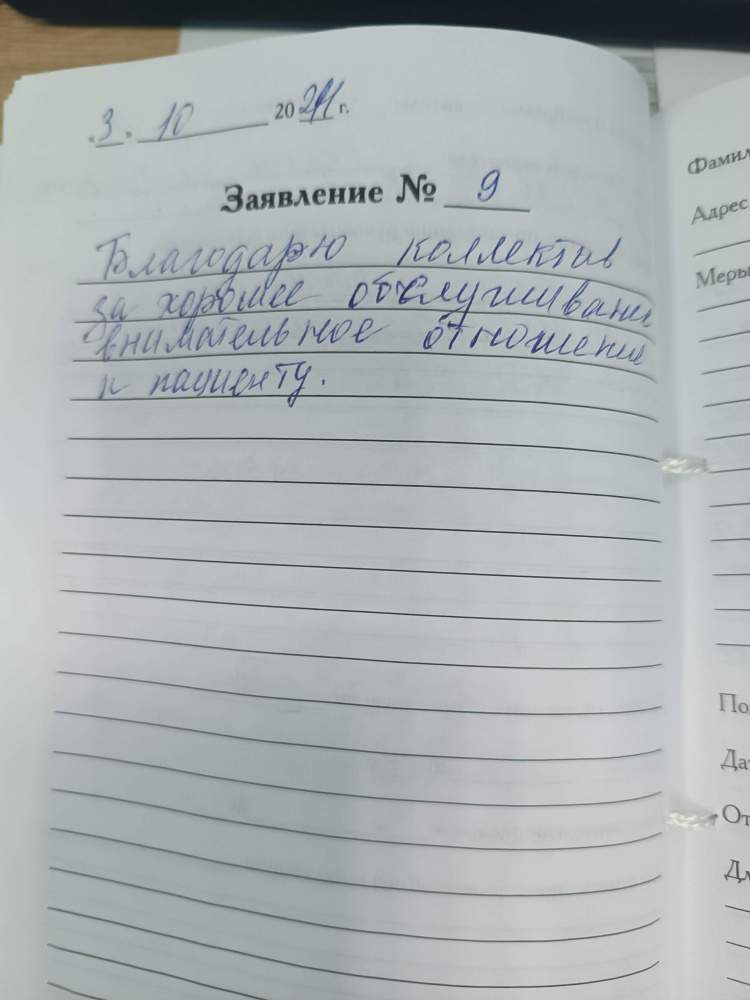 «3» 10 2024 г.
Заявление № 9
Благодарю коллектив
за хорошее обслуживани
внимательное отношени
к пациенту.
Фамил
Адрес
Меры
По
Да
От
Дл